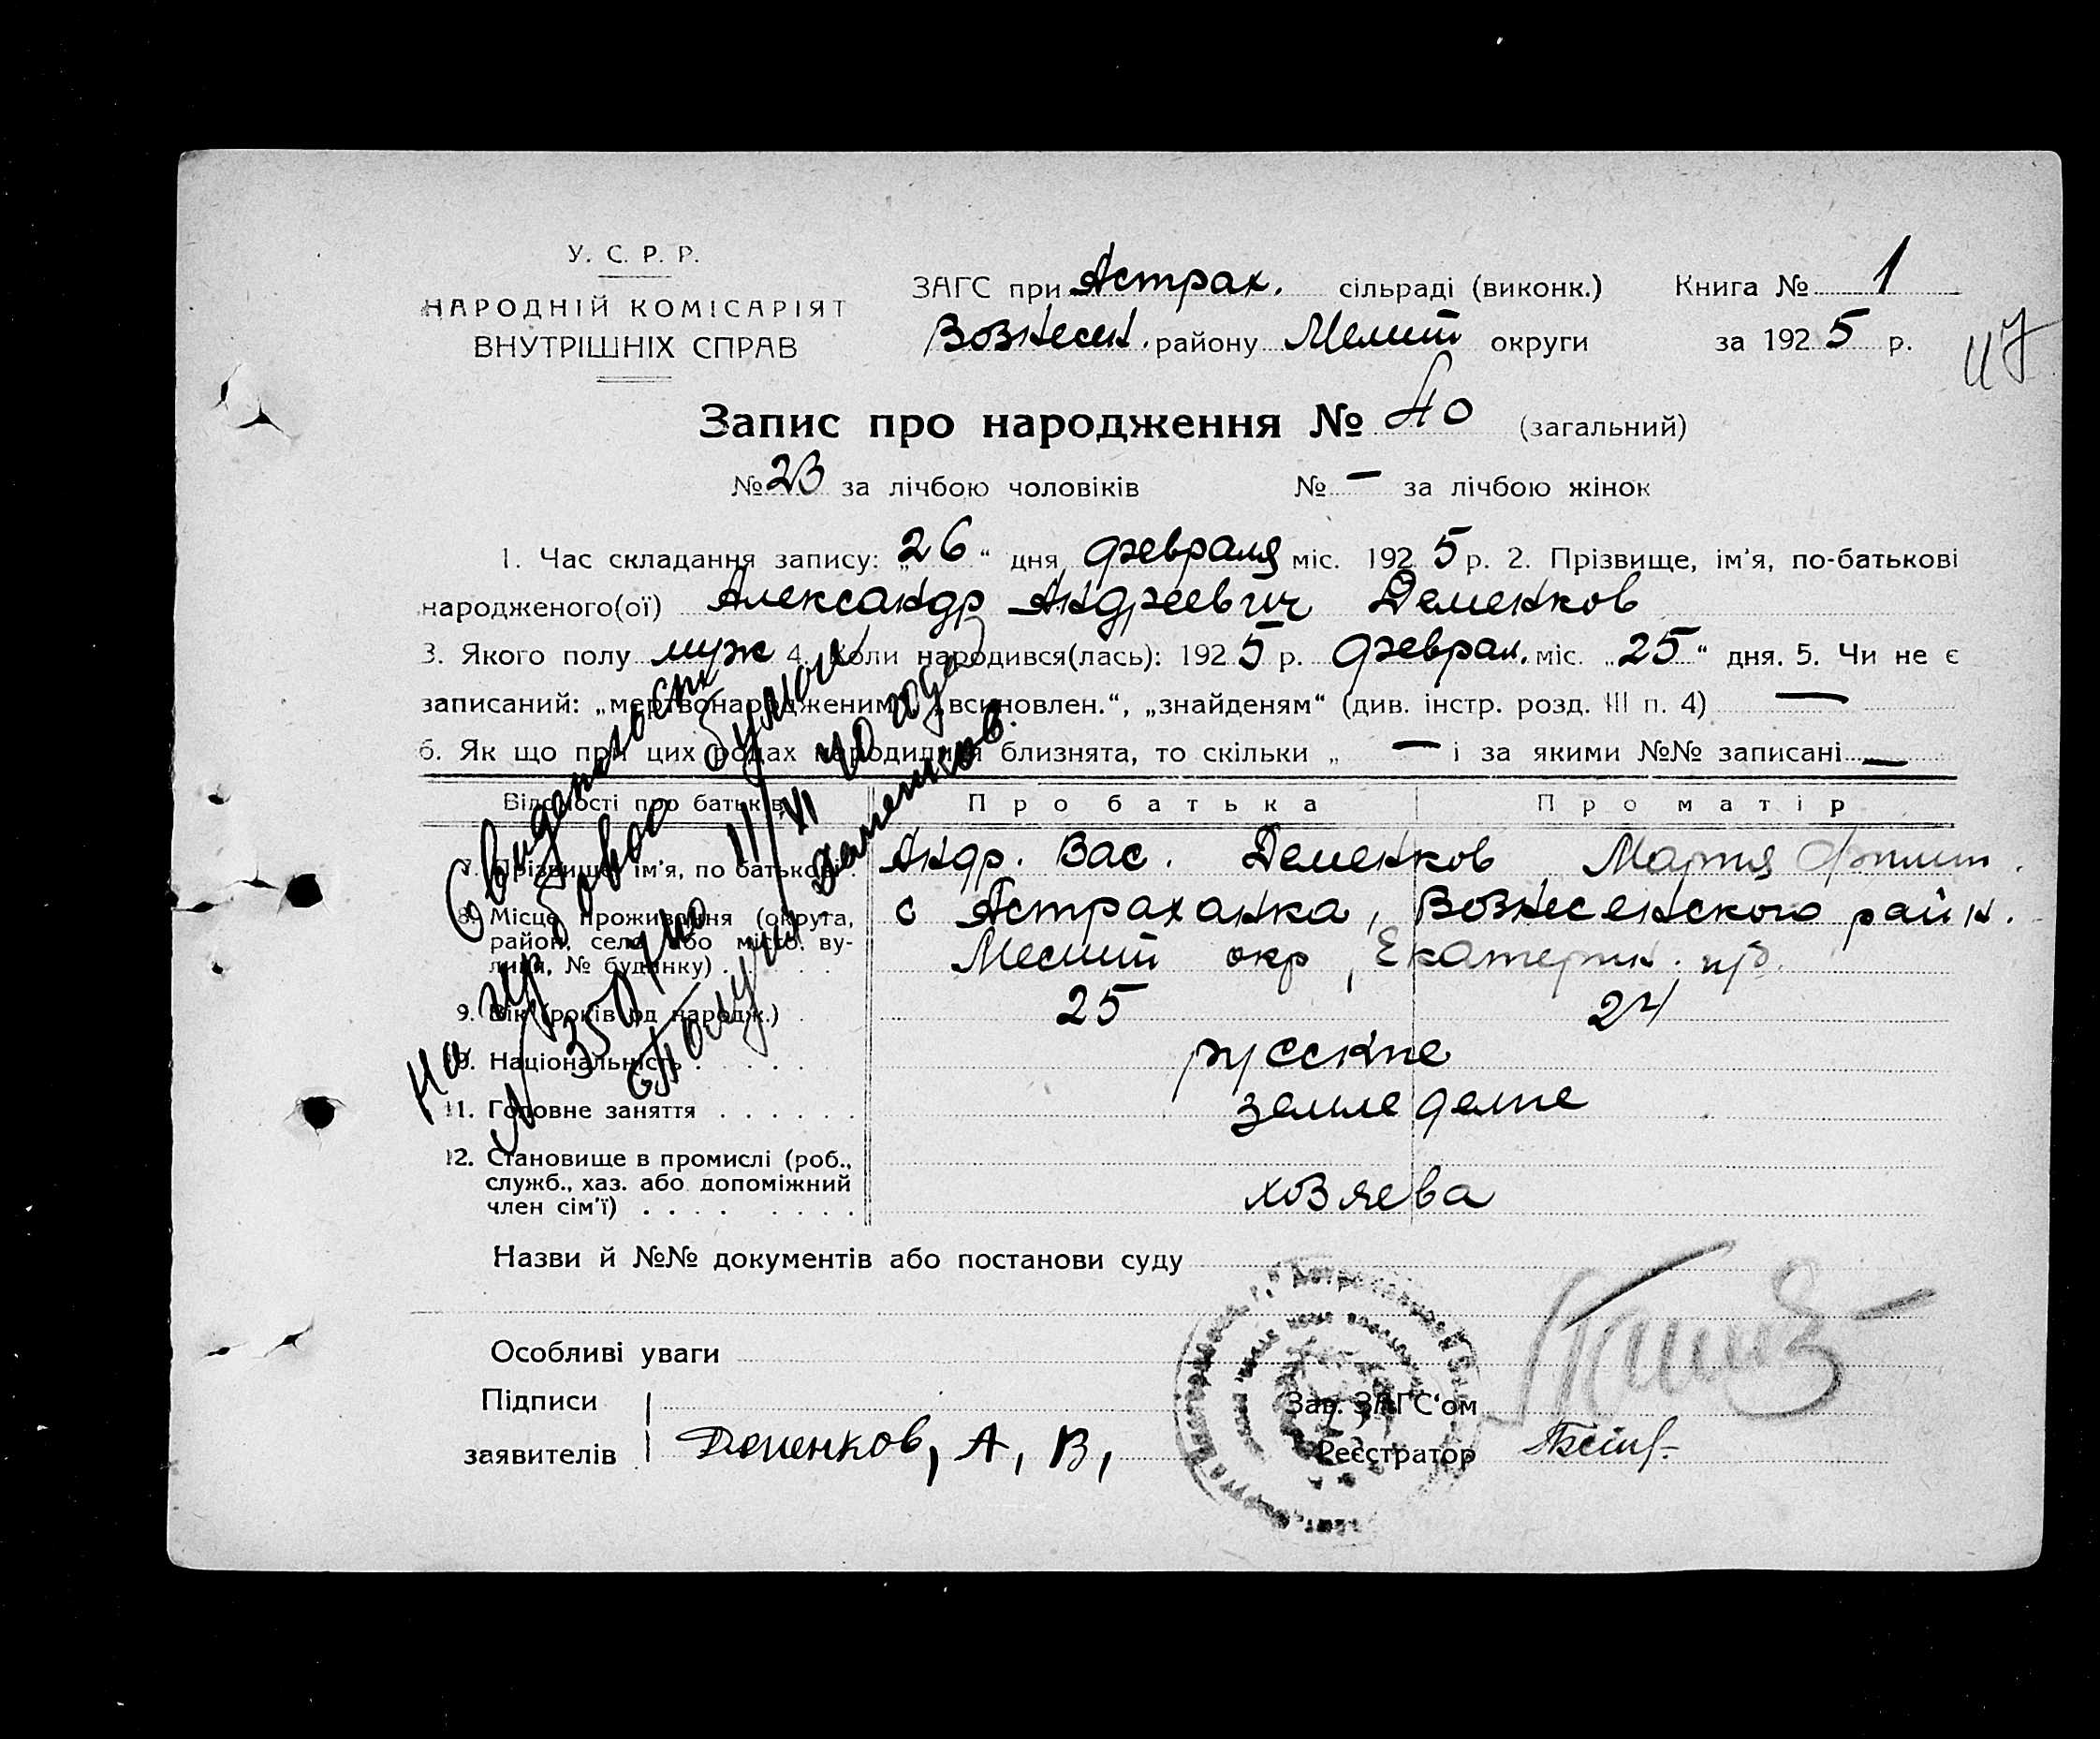 У. С. Р. Р.
НАРОДНІЙ КОМІСАРІЯТ
ВНУТРІШНІХ СПРАВ
ЗАГС при Астрах. сільраді (виконк.) Книга № 1
Вознесен. району Мелит округи за 1925 р.
Запис про народження № 40 (загальний)
№ 23 за лічбою чоловіків № — за лічбою жінок
1. Час складання запису: „26“ дня февраля міс. 1925 р. 2. Прізвище, ім'я, по-батькові
народженого(ої) Александр Андреевич Деменков
3. Якого полу муж 4. Коли народився(лась): 1925 р. феврал. міс. „25“ дня. 5. Чи не є
записаний: „мертвонародженим“, „всиновлен.“, „знайденям“ (див. інстр. розд. III п. 4) —
6. Як що при цих родах народилися близнята, то скільки „ — і за якими №№ записані —
Відомості про батьків Про батька Про матір
7. Прізвище, ім'я, по батькові . Андр. Вас. Деменков Мария Филип.
8. Місце проживання (округа, район, село або місто, ву-
лиця, № будинку) . . . . с Астраханка, Вознесенского райн.
Мелит окр, Екатерин. губ.
9. Вік (років од народж.) . 25 24
10. Національність . . . . . русские
11. Головне заняття . . . . . . земледелие
12. Становище в промислі (роб.,
служб., хаз. або допоміжний
член сім'ї) . . . . . . . . хозяева
Назви й №№ документів або постанови суду
Особливі уваги
Підписи
заявителів Деменков, А, В,
Зав. ЗАГС'ом
Реєстратор
на гербовой бумаге
11/VI 40 года
Получил Деменков.